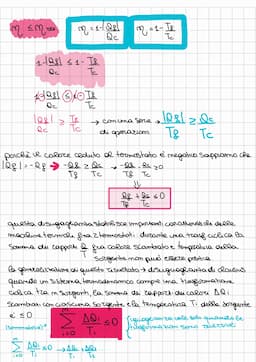 η ≤ ηrev
η = 1 - |Qf|/Qc
η = 1 - Tf/Tc
1 - |Qf|/Qc ≤ 1 - Tf/Tc
|Qf|/Qc ≥ Tf/Tc → con una serie di operazioni → |Qf|/Tf ≥ Qc/Tc
poiché il calore ceduto al termostato è negativo sappiamo che
|Qf| = -Qf → -Qf/Tf ≥ Qc/Tc → -Qf/Tf - Qc/Tc ≥ 0
Qf/Tf + Qc/Tc ≤ 0
questa disuguaglianza stabilisce importanti caratteristiche delle
macchine termiche fra 2 termostati: durante una trasf. ciclica la
somma dei rapporti Q/T fra calore scambiato e temperatura della
sorgente non può essere positiva
la generalizzazione di questo risultato → disuguaglianza di Clausius
quando un sistema termodinamico compie una trasformazione
ciclica tra m sorgenti, la somma dei rapporti dei calori ΔQi
scambiati con ciascuna sorgente e la temperatura Ti della sorgente
è ≤ 0
Σ ΔQi/Ti ≤ 0
(uguaglianza vale solo quando le trasformazioni sono